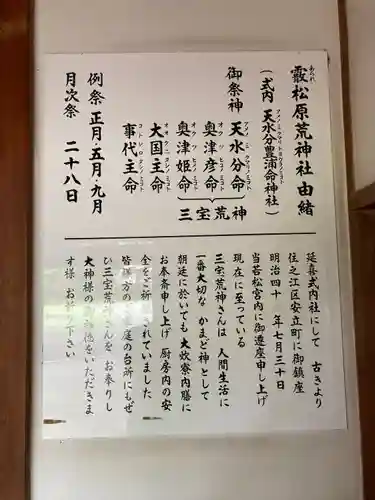 霰松原荒神社 由緒
あられ
(式内 天水分豊浦命神社)
御祭神 天水分命
奥津彦命
奥津姫命
三宝荒神
大国主命
事代主命
例祭 正月・五月・九月
月次祭 二十八日
延喜式内社にして 古きより
住之江区安立町に御鎮座
明治四十 年七月三十日
当若松宮内に御遷座申し上げ
現在に至っている
三宝荒神さんは 人間生活に
一番大切な かまど神として
朝廷に於いても 大炊寮内膳に
お奉斎申し上げ 厨房内の安
全をご祈 されていました
皆 方の 庭の台所にもぜ
ひ三宝荒神さんを お奉りし
大神様の をいただきま
す様 お 下さい